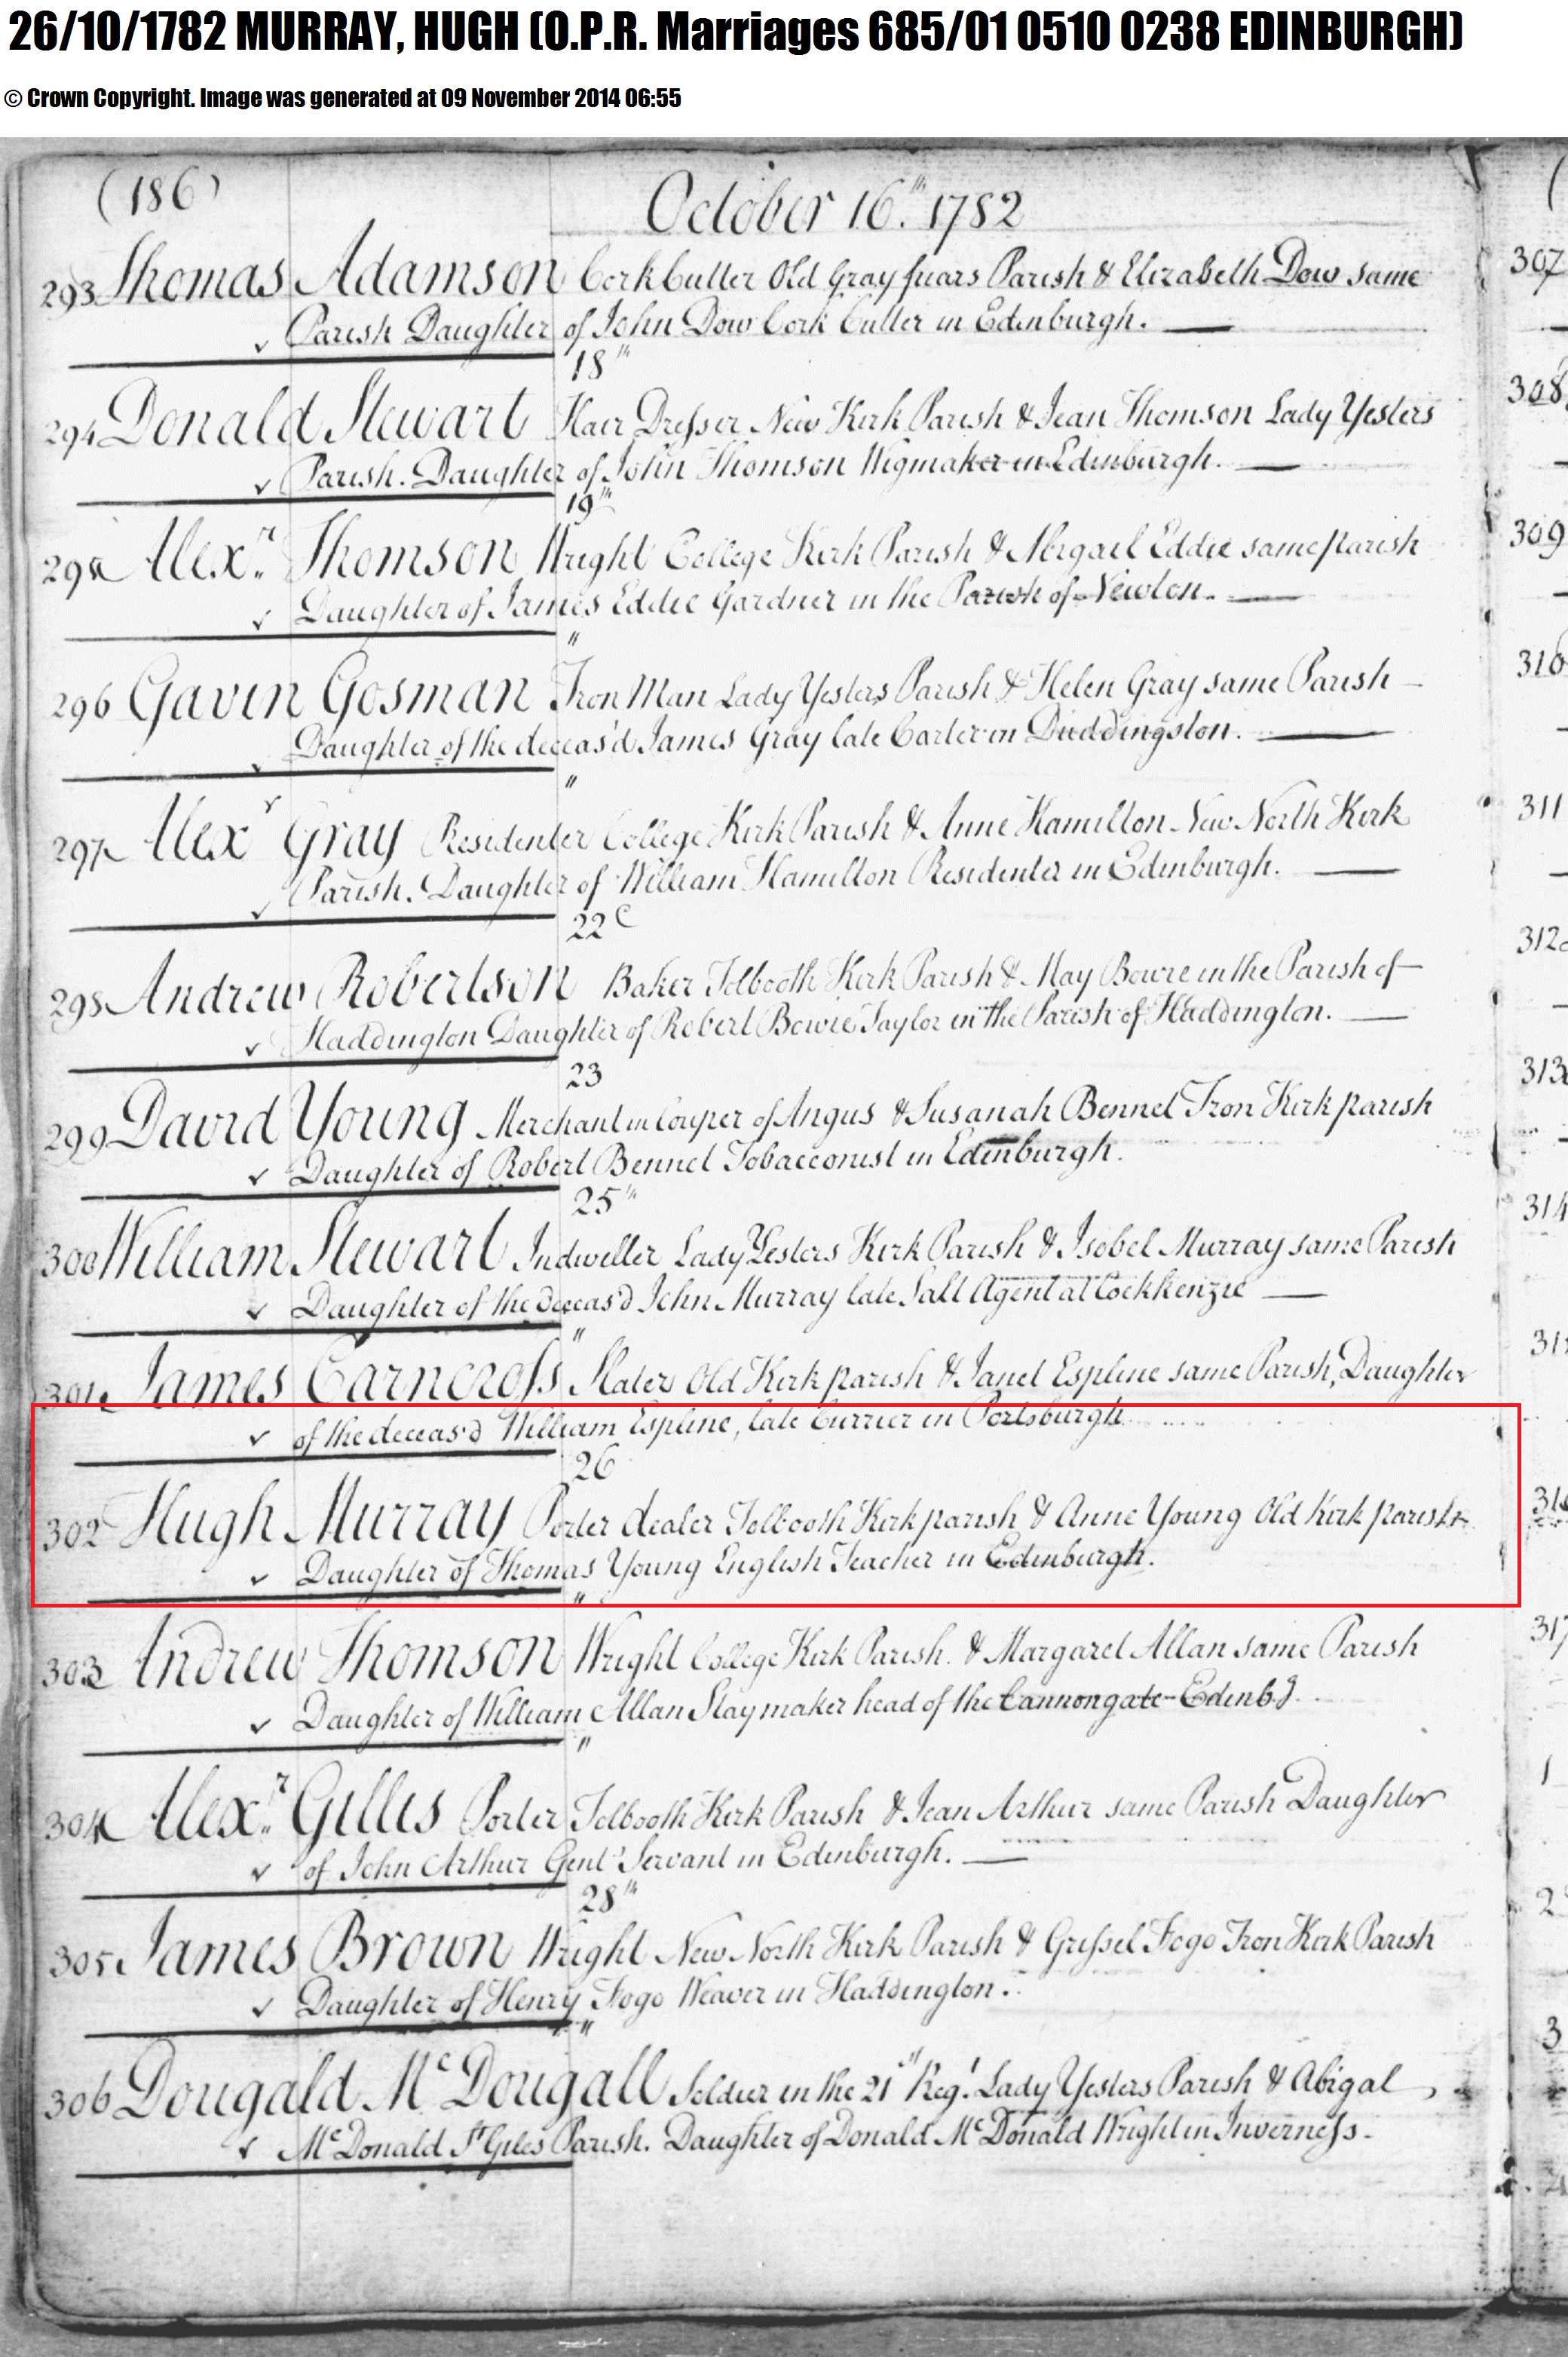 26/10/1782 MURRAY, HUGH (O.P.R. Marriages 685/01 0510 0238 EDINBURGH)
© Crown Copyright. Image was generated at 09 November 2014 06:55
(186)
October 16th. 1782
293 Thomas Adamson Cork Cutter Old Gray friars Parish & Elizabeth Dow same
Parish Daughter of John Dow Cork Cutter in Edinburgh.
18th
294 Donald Stewart Hair Dresser New Kirk Parish & Jean Thomson Lady Yesters
Parish. Daughter of John Thomson Wigmaker in Edinburgh.
19th
295 Alexr. Thomson Wright College Kirk Parish & Abigail Eddie same parish
Daughter of James Eddie Gardner in the Parish of Newton.
"
296 Gavin Gosman Tron Man Lady Yesters Parish & Helen Gray same Parish
Daughter of the deceas'd James Gray late Carter in Duddingston.
"
297 Alexr Gray Residenter College Kirk Parish & Anne Hamilton New North Kirk
Parish. Daughter of William Hamilton Residenter in Edinburgh.
22
298 Andrew Robertson Baker Tolbooth Kirk Parish & May Bowie in the Parish of
Haddington Daughter of Robert Bowie Taylor in the Parish of Haddington.
23
299 David Young Merchant in Couper of Angus & Susanah Bennet Tron Kirk parish
Daughter of Robert Bennet Tobacconist in Edinburgh.
25th
300 William Stewart Indweller Lady Yesters Kirk Parish & Isobel Murray same Parish
Daughter of the deceas'd John Murray late Salt Agent at Cockkenzie
"
301 James Carncross Slater Old Kirk parish & Janet Espline same Parish, Daughter
of the deceas'd William Espline, late Currier in Portsburgh
26
302 Hugh Murray Porter dealer Tolbooth Kirk parish & Anne Young Old Kirk parish
Daughter of Thomas Young English Teacher in Edinburgh.
"
303 Andrew Thomson Wright College Kirk Parish. & Margaret Allan same Parish
Daughter of William Allan Staymaker head of the Cannongate Edinbg.
"
304 Alexr. Gillis Porter Tolbooth Kirk Parish & Jean Arthur same Parish Daughter
of John Arthur Gentˢ Servant in Edinburgh.
28th
305 James Brown Wright New North Kirk Parish & Grissel Fogo Tron Kirk Parish
Daughter of Henry Fogo Weaver in Haddington.
"
306 Dougald McDougall Soldier in the 21st Regt. Lady Yesters Parish & Abigal
McDonald St Giles Parish. Daughter of Donald McDonald Wright in Inverness.
307
308
309
310
311
312
313
314
317
1
2
3